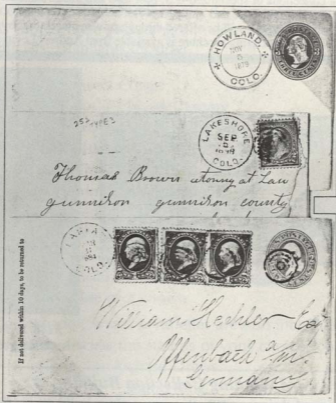 HOWLAND.
NOV
5
1879
COLO.
257 TYPE 3
LAKESHORE
SEP
COLO.
Thomas Brown atorny at Law
gunnison gunnison county
COLO.
If not delivered within 10 days, to be returned to
William Heckler Esq
Offenbach a/m.
Germany